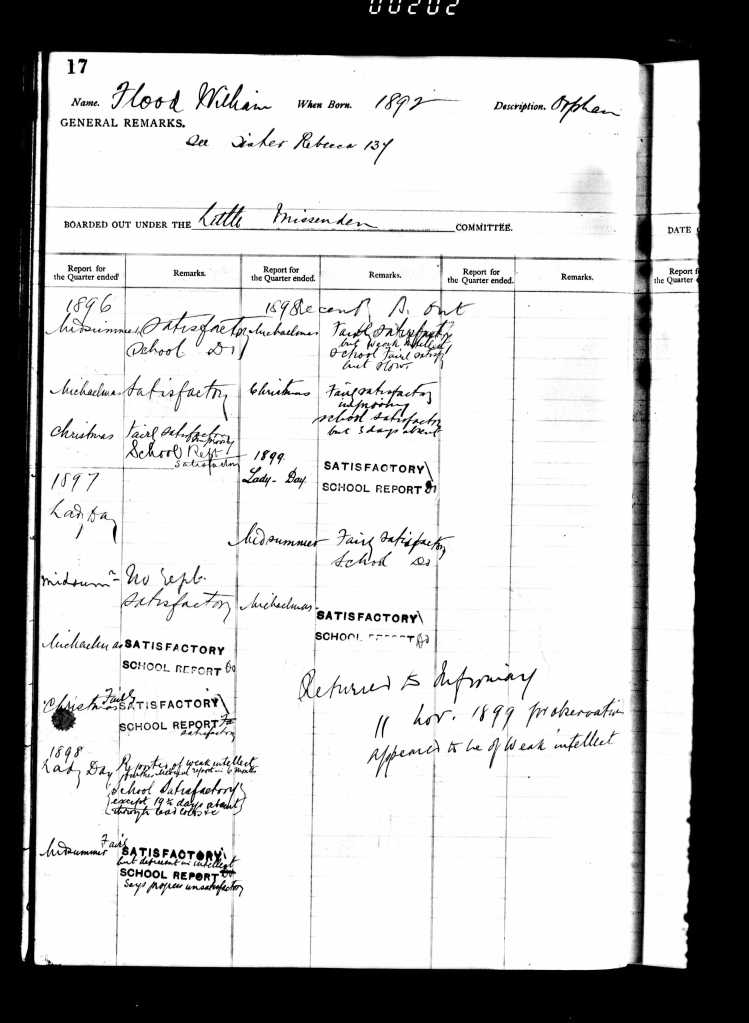 00202
17
Name. Flood William When Born. 1892 Description. Orphan
GENERAL REMARKS.
See Sister Rebecca 134
BOARDED OUT UNDER THE Little Missenden COMMITTEE.
DATE
Report for the Quarter ended
Remarks.
Report for the Quarter ended.
Remarks.
Report for the Quarter ended.
Remarks.
1896
Midsummer Satisfactory
School Do
Michaelmas Satisfactory
Christmas Fairly satisfactory improving
School Rept
Satisfactory
1897
Lady Day
Midsumr No rept.
satisfactory
Michaelmas SATISFACTORY
SCHOOL REPORT Do
Christmas Fairly SATISFACTORY
SCHOOL REPORT
satisfactory
1898
Lady Day Reported of weak intellect
further medical report in 6 months
School Satisfactory
except 19½ days absent
through bad colds &c
Midsummer Fairly SATISFACTORY
but deficient in intellect
SCHOOL REPORT
says progress unsatisfactory
1898 B. out
Michaelmas Fairly satisfactory
but weak intellect
School Fairly satisfy
but slow
Christmas Fairly satisfactory
improving
school satisfactory
but 3 days absent
1899
Lady-Day SATISFACTORY
SCHOOL REPORT Do
Midsummer Fairly satisfactory
School Do
Michaelmas SATISFACTORY
SCHOOL REPORT Do
Returned to Infirmary
11 Nov. 1899 for observation
appeared to be of weak intellect
Report f
the Quarter